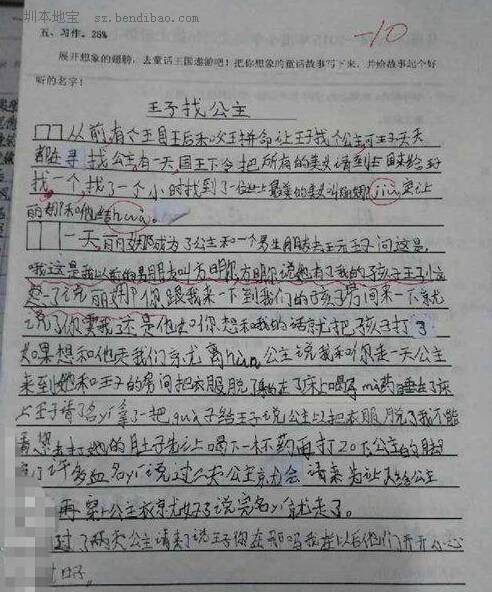 圳本地宝 sz.bendibao.com
五、习作。28%
-10
展开想象的翅膀，去童话王国遨游吧！把你想象的童话故事写下来，并给故事起个好
听的名字！
王子找公主
从前，有个王国王后和父王拼命让王子找个公主可王子天天
都在寻找公主，有一天，国王下令把所有的美女请到
找一个，找了一个小时找到了一位世上最美的美女叫丽娜，jiu
丽娜和他结hun。
一天丽娜成为了公主和一个男生朋友去王子问这是，
我这是我以前的男朋友叫方明，方明说她有了我的孩子王子
了说丽娜你跟我来一下到我们的孩子房间来一下京尤
说了你要我还是他如你想和我的话就把孩子打了
如果想和他天我们京尤离hun公主说我和你走一天公主
来到她和王子的房间把衣服脱了在了床上喝了ma药睡在了床
上王子请了名yi拿了一把gua子给王子说公主以把衣服脱了我不能
去打她的肚子先让上喝下一杯药再打20下公主的
了许多血名yi说过二天公主京尤会请来先让给公主
再公主衣京尤好了说完名yi就走了。
过了两天公主请来了说王子你在那吗我在以后他们开开心心